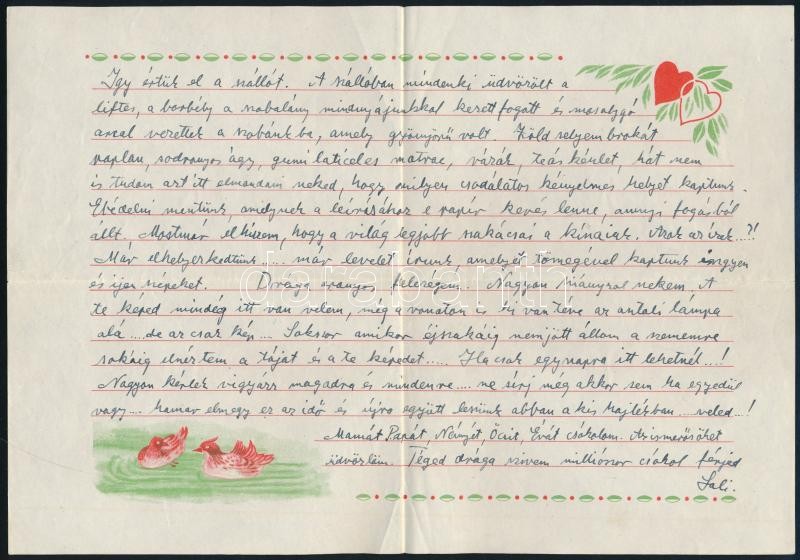 Igy értük el a szállót. A szállóban mindenki üdvözölt a
liftes, a borbély a szobalány mindnyájunkkal kezett fogott és mosolygó
arcal vezettek a szobánkba, amely gyönyörű volt. Zöld selyem brokát
paplan, sodronyos ágy, gumi laticeles matrac, vázák, teáskészlet, hát nem
is tudom azt itt elmondani neked, hogy milyen csodálatos kényelmes helyet kaptunk.
Ebédelni mentünk, amelynek a leírásához e papír kevés lenne, annyi fogásból
állt. Mostmár elhiszem, hogy a világ legjobb szakácsai a kínaiak. Azok az ízek...?!
Már elhelyezkedtünk.... már levelet írunk amelyet tömegével kaptunk ingyen
és ilyen szépeket. Drága aranyos feleségem. Nagyon hiányzol nekem. A
te képed mindég itt van velem, még a vonaton is ki van téve az asztali lámpa
alá....de az csak kép... Sokszor amikor éjszakáig nemjött álom a szememre
sokáig elnéztem a táját és a te képedet..... Ha csak egy napra itt lehetnél....!
Nagyon kérlek vigyázz magadra és mindenre.... ne sírj még akkor sem ha egyedül
vagy.... hamar elmegy ez az idő és újra együtt leszünk abban a kis hajlékban....veled...!
Mamát Papát, Nényét, Öcsit, Évát csókolom. Az ismerősöket
üdvözlöm. Téged drága szivem milliószor csókol férjed
Lali.
darabanth